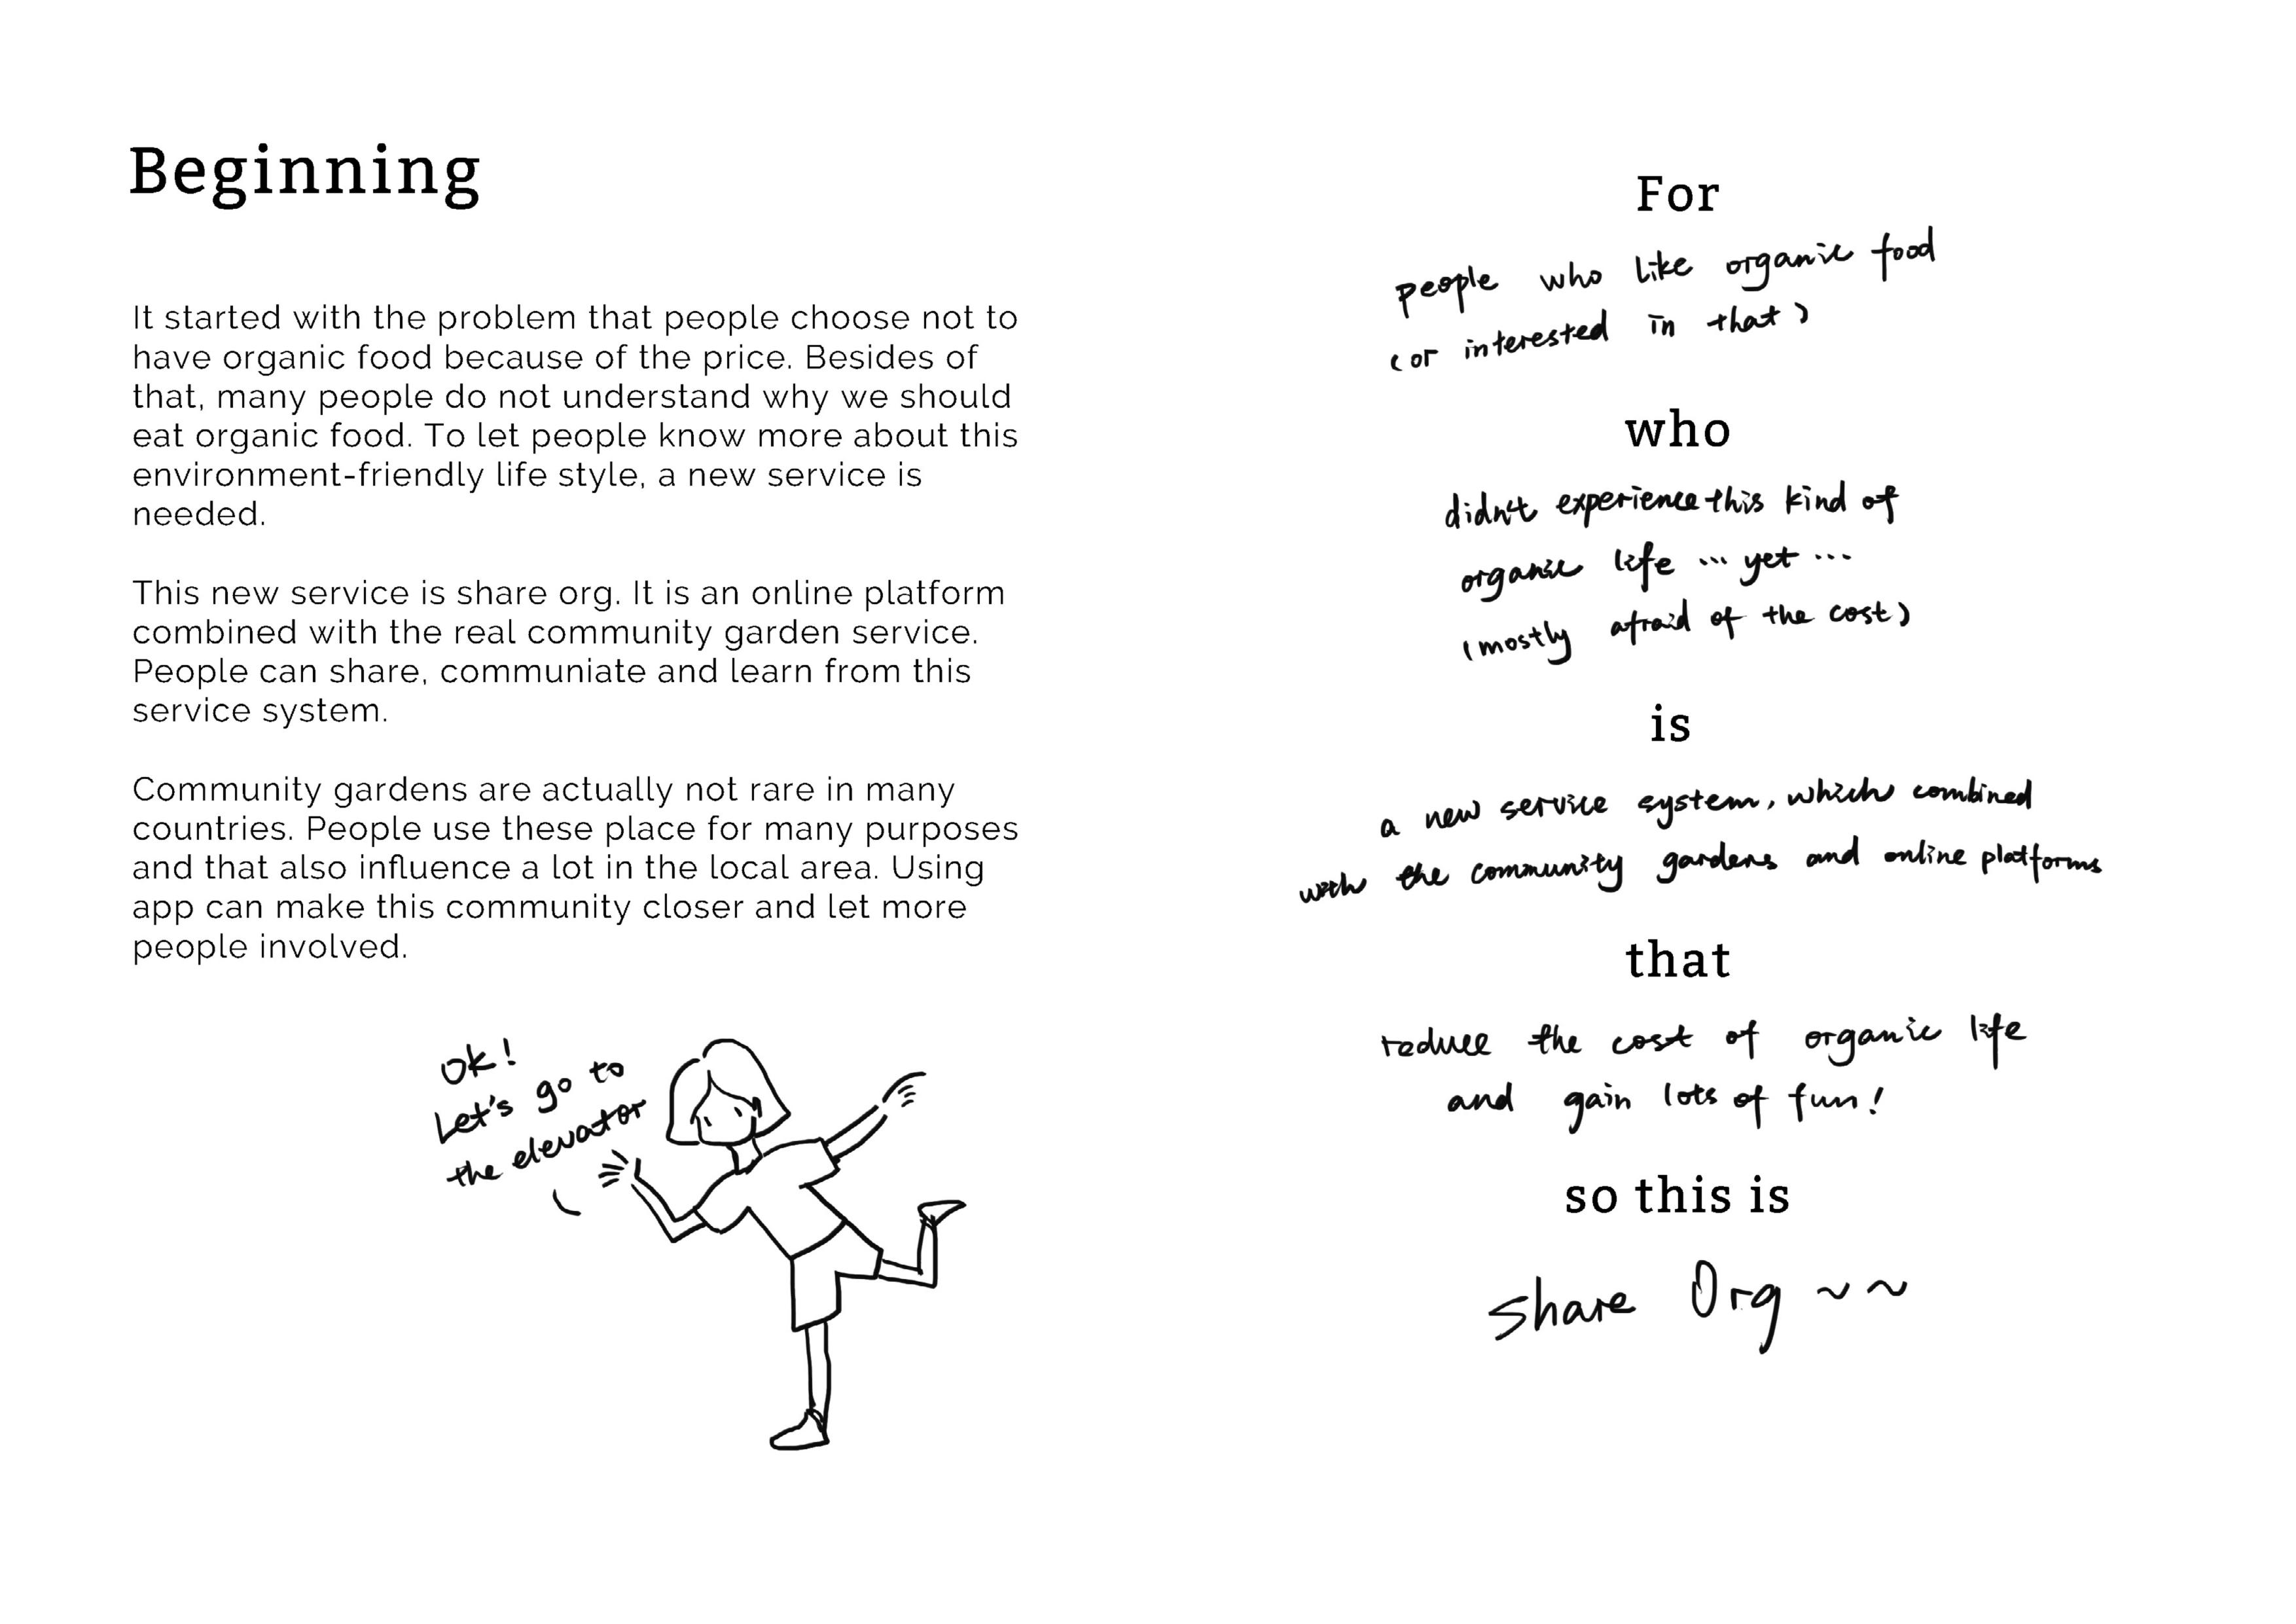 Beginning
It started with the problem that people choose not to
have organic food because of the price. Besides of
that, many people do not understand why we should
eat organic food. To let people know more about this
environment-friendly life style, a new service is
needed.
This new service is share org. It is an online platform
combined with the real community garden service.
People can share, communiate and learn from this
service system.
Community gardens are actually not rare in many
countries. People use these place for many purposes
and that also influence a lot in the local area. Using
app can make this community closer and let more
people involved.
Ok!
Let's go to
the elevator
For
people who like organic food
(or interested in that)
who
didn't experience this kind of
organic life ... yet ...
(mostly afraid of the cost)
is
a new service system, which combined
with the community gardens and online platforms
that
reduce the cost of organic life
and gain lots of fun!
so this is
share Org ~~